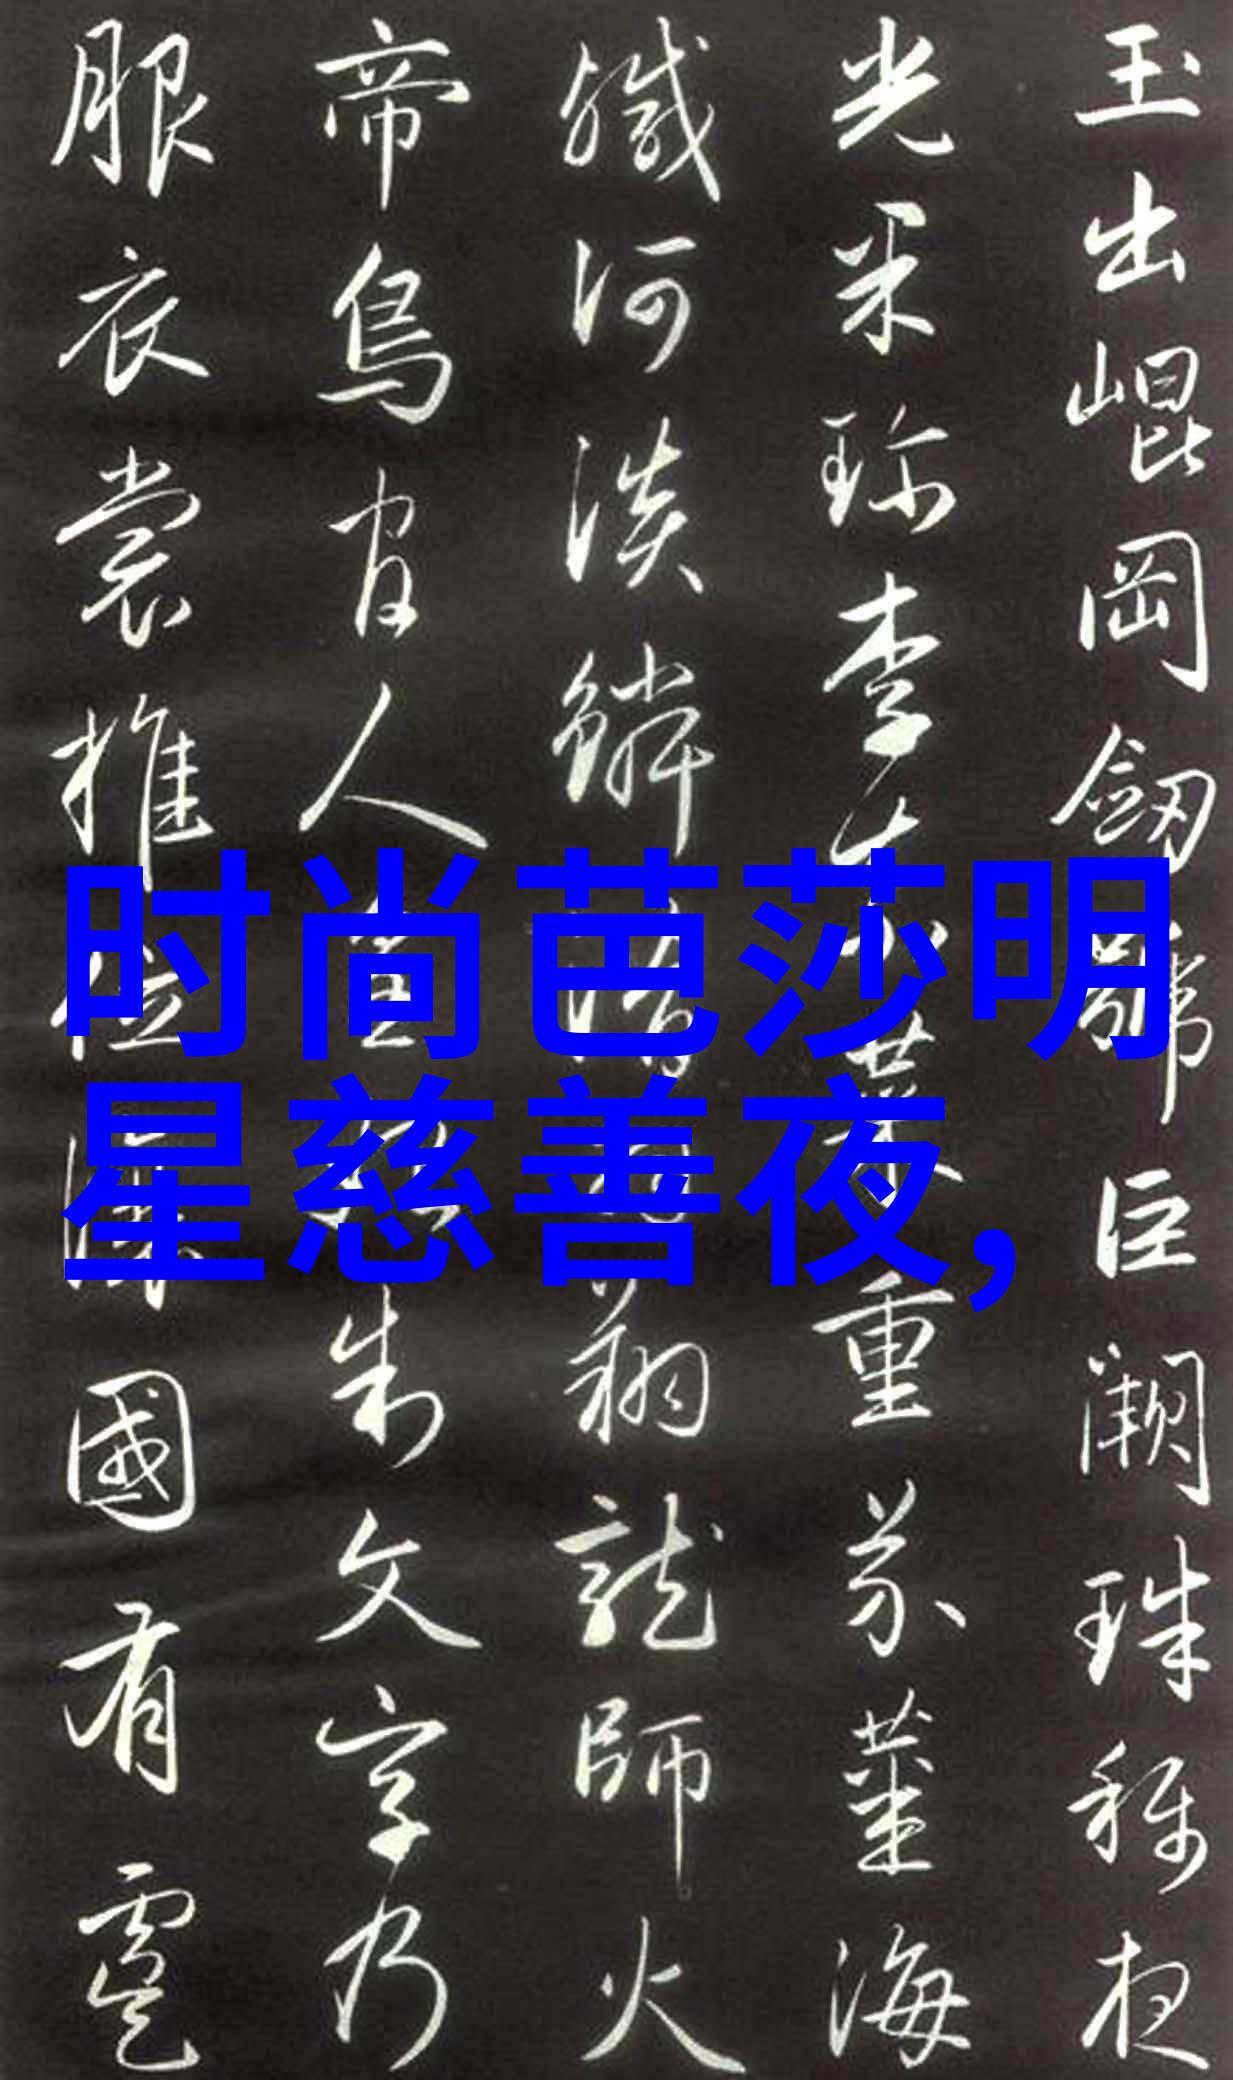 玉出崐岡劒號巨闕珠称夜
光果珎李柰菜重芥薑海
鹹河淡鱗潛羽翔龍師火
帝鳥官人皇始制文字乃
服衣裳推位讓國有虞
时尚芭莎明
星慈善夜,